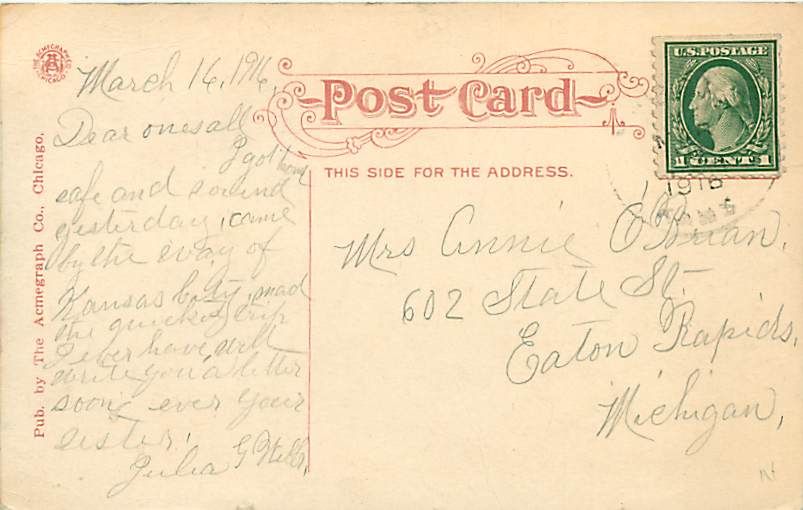 THE ACMEGRAPH CO. CHICAGO
March 16, 1916,
Dear ones all
I got home
safe and sound
yesterday, came
by the way of
Kansas City, mad
the quickest trip
I ever have will
write you a letter
soon, ever your
sister,
Julia G
Pub. by The Acmegraph Co., Chicago.
Post Card
THIS SIDE FOR THE ADDRESS.
U.S. POSTAGE
1 CENT 1
1916
Mrs Annie O'Brian,
602 State St.
Eaton Rapids,
Michigan,
N